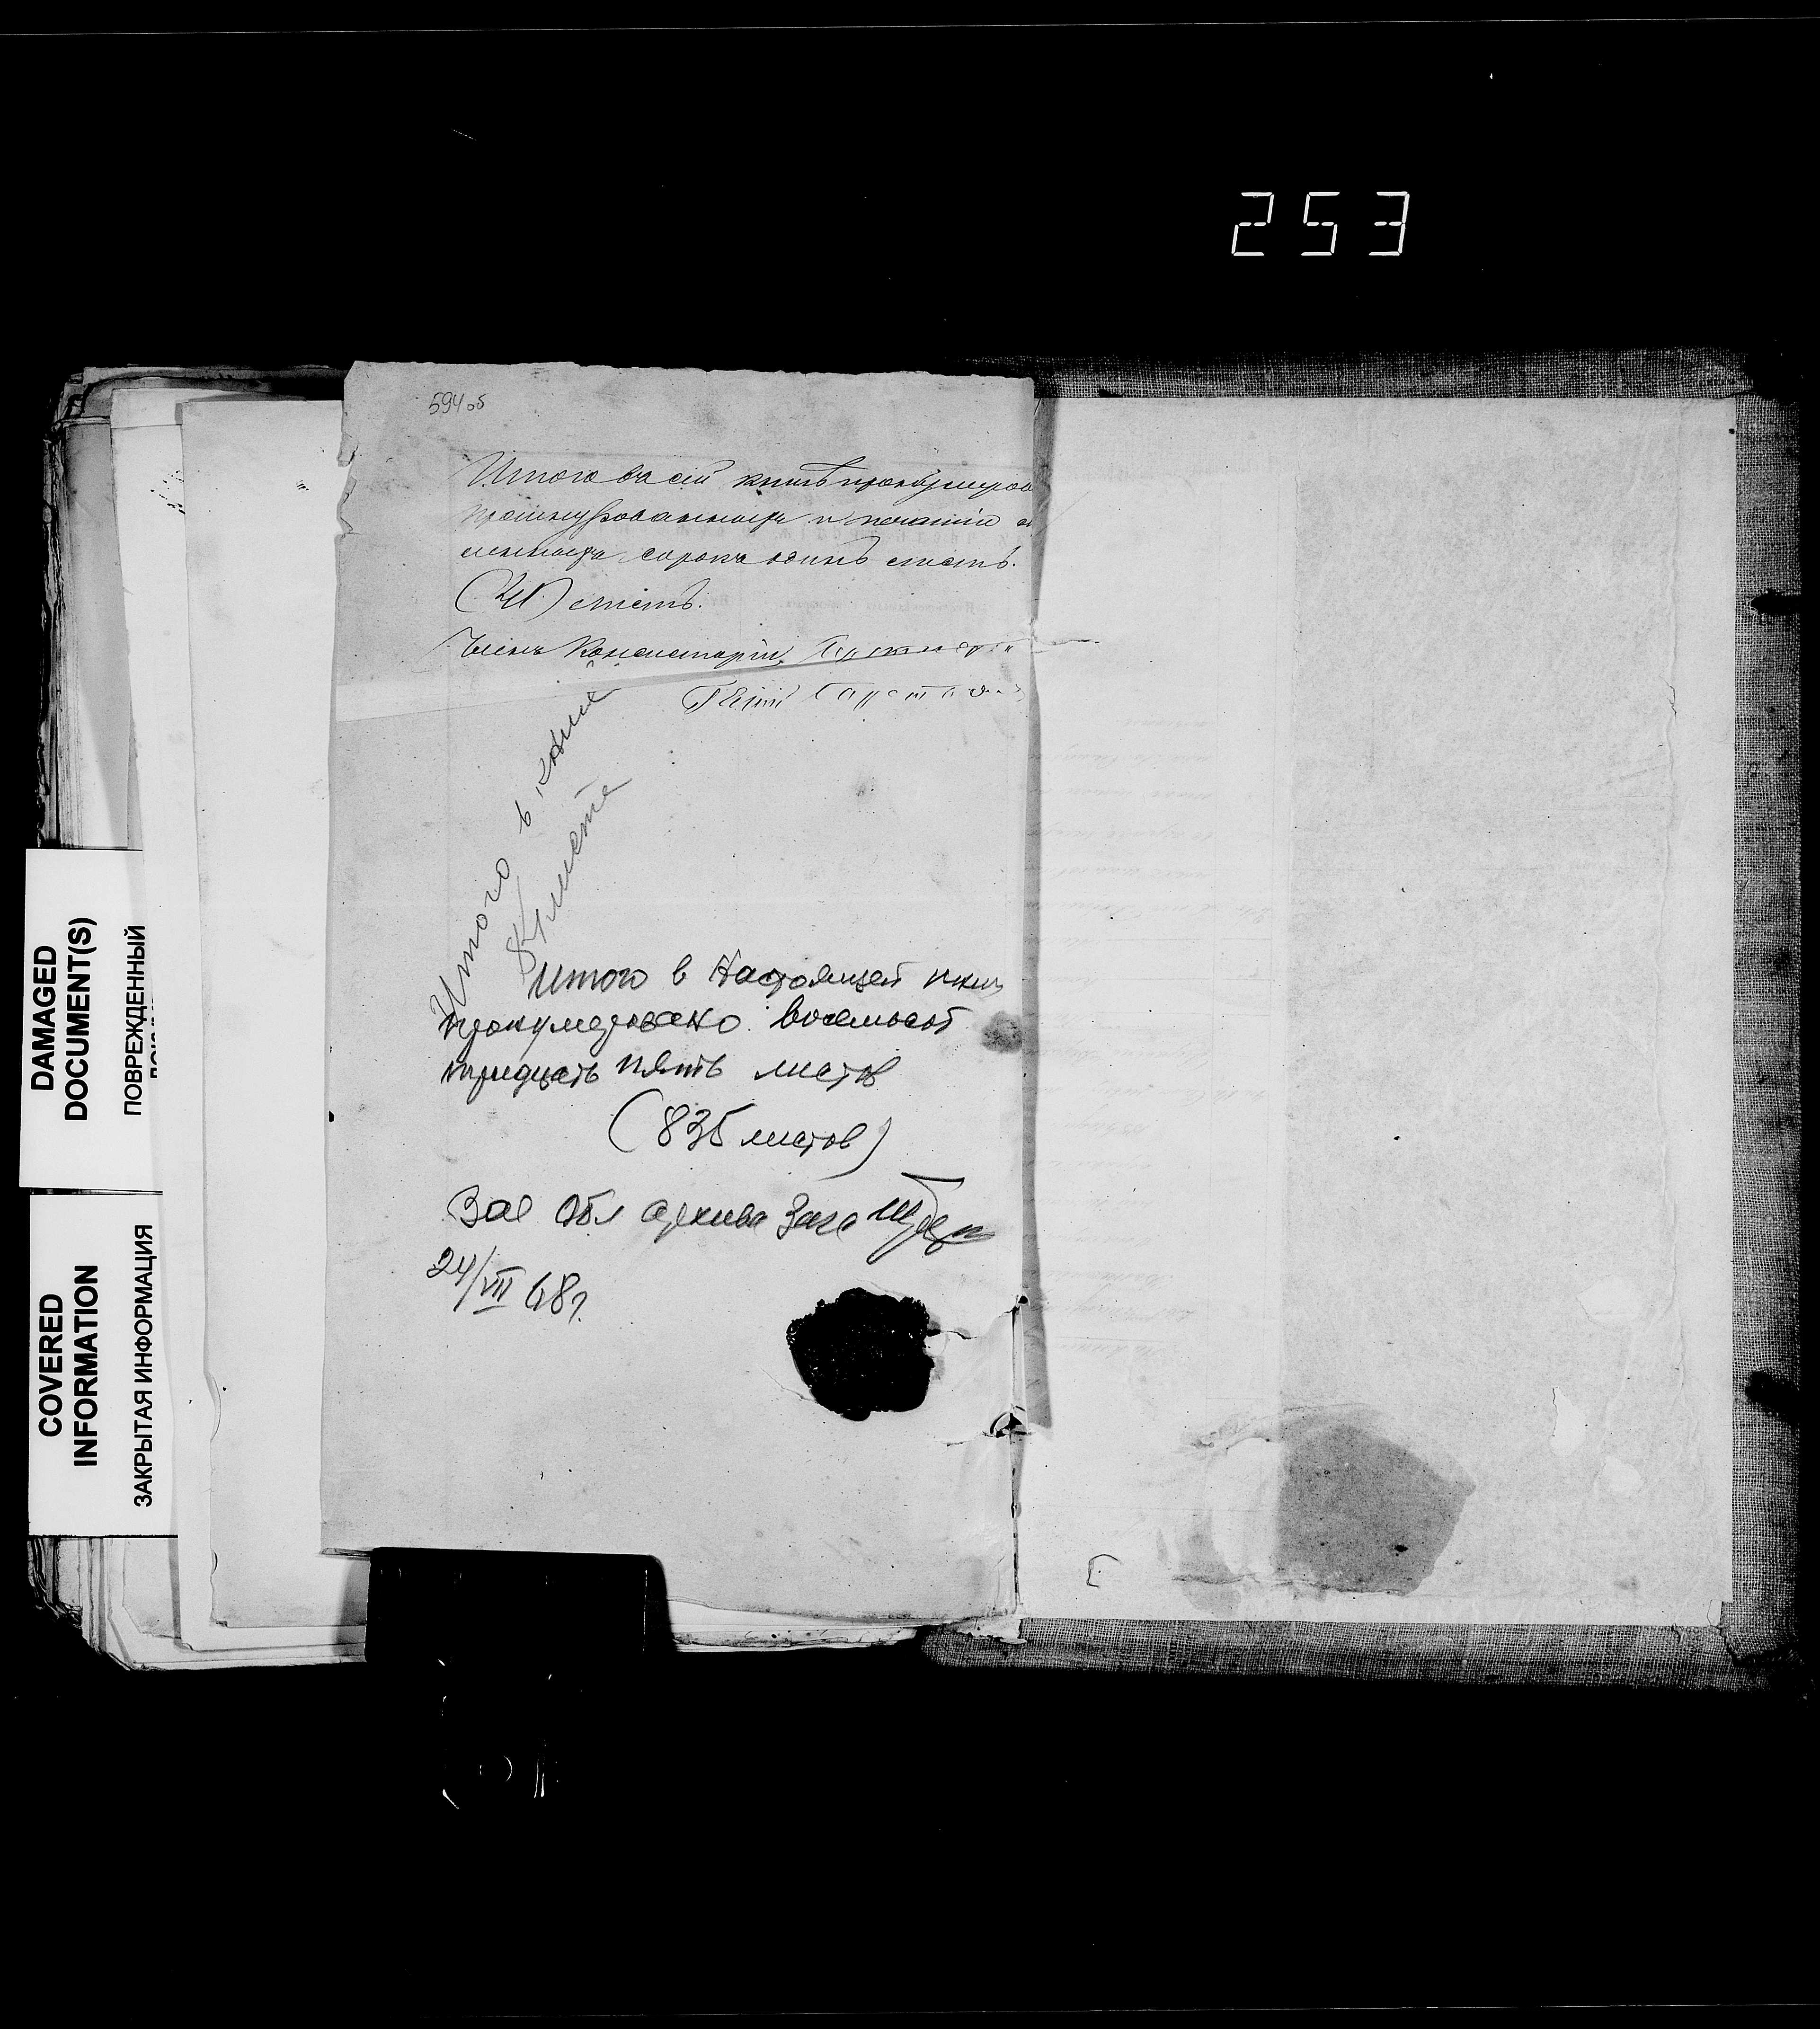 253
594 об
Итого въ сей книгѣ пронумеров
прошнурованныхъ и печатію
леннхъ сорокъ одинъ листъ.
(41) листъ.
Членъ Консисторіи,
Итого в книге
841 листе
Итого в настоящей книг
пронумеровано восемьсот
тридцать пять листов
(835 листов)
Зав Обл архива Загс
24/VII 68г.
DAMAGED
DOCUMENT(S)
ПОВРЕЖДЕННЫЙ
COVERED
INFORMATION
ЗАКРЫТАЯ ИНФОРМАЦИЯ